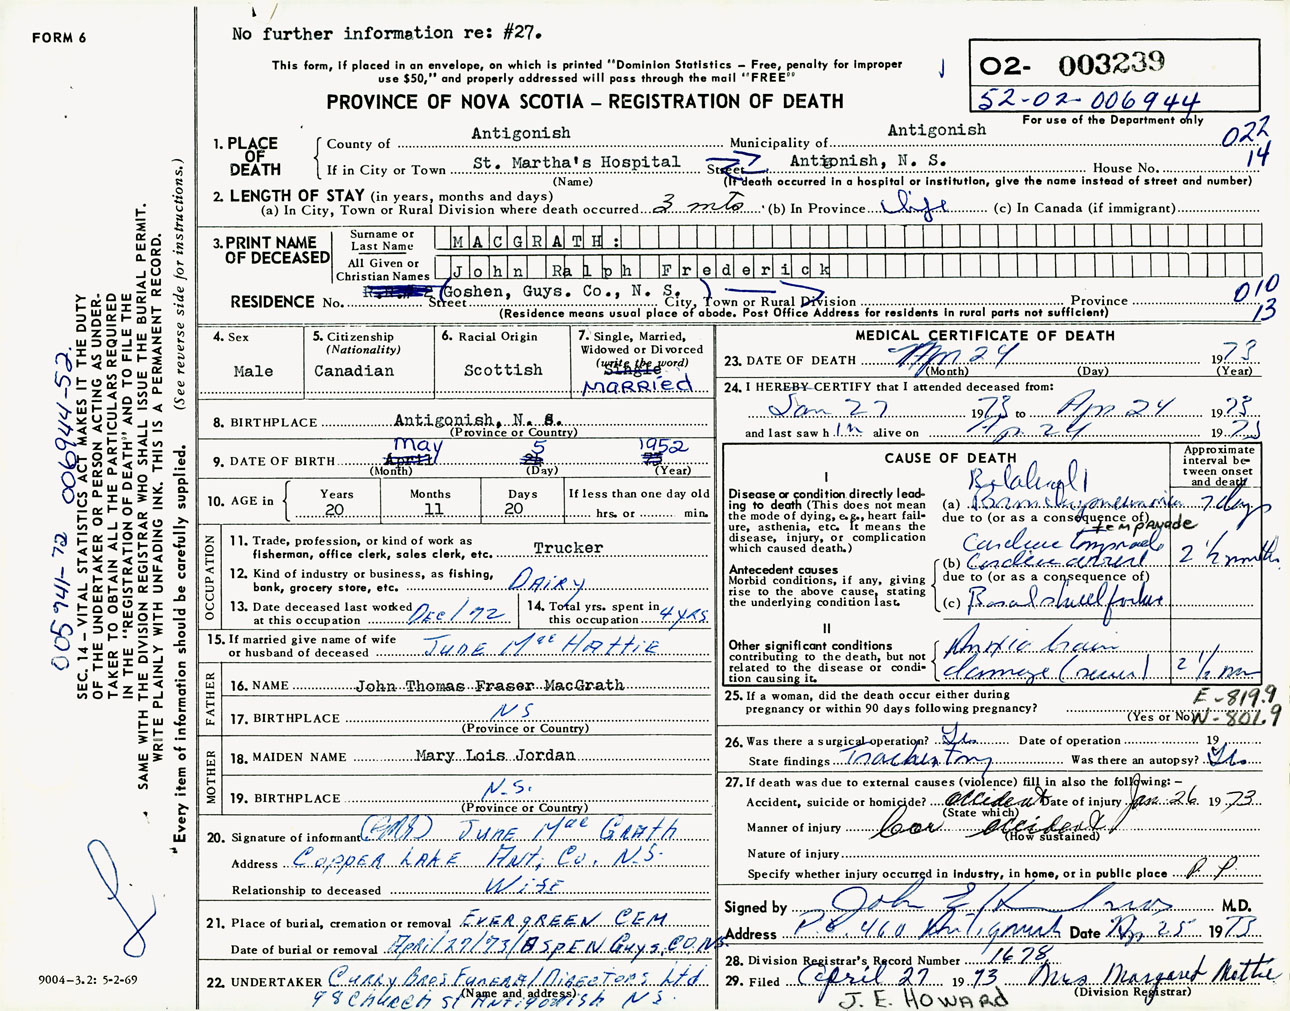 FORM 6
No further information re: #27.
This form, if placed in an envelope, on which is printed "Dominion Statistics – Free, penalty for improper
use $50," and properly addressed will pass through the mail "FREE"
PROVINCE OF NOVA SCOTIA – REGISTRATION OF DEATH
02- 003239
52-02-006944
For use of the Department only
022
14
1. PLACE OF DEATH
County of Antigonish Municipality of Antigonish
If in City or Town St. Martha's Hospital Street Antigonish, N. S. House No.
(Name) (If death occurred in a hospital or institution, give the name instead of street and number)
2. LENGTH OF STAY (in years, months and days)
(a) In City, Town or Rural Division where death occurred 3 mts (b) In Province life (c) In Canada (if immigrant)
3. PRINT NAME OF DECEASED
Surname or Last Name MACGRATH:
All Given or Christian Names John Ralph Frederick
RESIDENCE No. (Goshen, Guys. Co., N. S.)
Street City, Town or Rural Division Province
(Residence means usual place of abode. Post Office Address for residents in rural parts not sufficient)
010
13
4. Sex
Male
5. Citizenship
(Nationality)
Canadian
6. Racial Origin
Scottish
7. Single, Married,
Widowed or Divorced
(write the word)
Single
MARRIED
8. BIRTHPLACE Antigonish, N. S.
(Province or Country)
9. DATE OF BIRTH May 5 1952
April
(Month) (Day) (Year)
10. AGE in
Years Months Days If less than one day old
20 11 20 hrs. or min.
OCCUPATION
11. Trade, profession, or kind of work as
fisherman, office clerk, sales clerk, etc. Trucker
12. Kind of industry or business, as fishing,
bank, grocery store, etc. DAIRY
13. Date deceased last worked
at this occupation DEC/72
14. Total yrs. spent in
this occupation 4 YRS.
15. If married give name of wife
or husband of deceased JUNE Mac HATTIE
FATHER
16. NAME John Thomas Fraser MacGrath
17. BIRTHPLACE NS
(Province or Country)
MOTHER
18. MAIDEN NAME Mary Lois Jordan
19. BIRTHPLACE N.S.
(Province or Country)
20. Signature of informant JUNE Mac GRATH
Address COPPER LAKE ANT. CO. N.S.
Relationship to deceased WIFE
21. Place of burial, cremation or removal EVERGREEN CEM
Date of burial or removal April/27/73/ASPEN GUYS. CO. N.S.
22. UNDERTAKER CURRY BROS FUNERAL DIRECTORS Ltd
(Name and address)
98 CHURCH St ANTIGONISH N S.
MEDICAL CERTIFICATE OF DEATH
23. DATE OF DEATH Apr 24 1973
(Month) (Day) (Year)
24. I HEREBY CERTIFY that I attended deceased from:
Jan 27 1973 to Apr 24 1973
and last saw him alive on Apr 24 1973
CAUSE OF DEATH
Approximate
interval be-
tween onset
and death
I
Disease or condition directly lead-
ing to death (This does not mean
the mode of dying, e.g., heart fail-
ure, asthenia, etc. It means the
disease, injury, or complication
which caused death.)
Bilateral
(a) Bronchopneumonia 7 days
due to (or as a consequence of)
tempanade
Cardiac
Antecedent causes
Morbid conditions, if any, giving
rise to the above cause, stating
the underlying condition last.
(b) Cardiac arrest 2 ½ months
due to (or as a consequence of)
(c) Basal skull fracture
II
Other significant conditions
contributing to the death, but not
related to the disease or condi-
tion causing it.
Anoxic brain
damage (severe) 2 ½ mon
25. If a woman, did the death occur either during
pregnancy or within 90 days following pregnancy?
(Yes or No)
E-819.9
N-801.9
26. Was there a surgical operation? Yes Date of operation 19
State findings Tracheotomy Was there an autopsy? Yes
27. If death was due to external causes (violence) fill in also the following: –
Accident, suicide or homicide? accident Date of injury Jan. 26 1973
(State which)
Manner of injury Car accident
(How sustained)
Nature of injury
Specify whether injury occurred in industry, in home, or in public place P. P.
Signed by John E M.D.
Address P.O. 460 Antigonish Date Apr 25 1973
28. Division Registrar's Record Number 1678
29. Filed April 27 1973 Mrs Margaret Mattie
(Division Registrar)
J. E. HOWARD
005941-72 006944-52.
SEC. 14 – VITAL STATISTICS ACT MAKES IT THE DUTY
OF THE UNDERTAKER OR PERSON ACTING AS UNDER-
TAKER TO OBTAIN ALL THE PARTICULARS REQUIRED
IN THE "REGISTRATION OF DEATH" AND TO FILE THE
SAME WITH THE DIVISION REGISTRAR WHO SHALL ISSUE THE BURIAL PERMIT.
WRITE PLAINLY WITH UNFADING INK. THIS IS A PERMANENT RECORD.
"Every item of information should be carefully supplied. (See reverse side for instructions.)
9004-3.2: 5-2-69